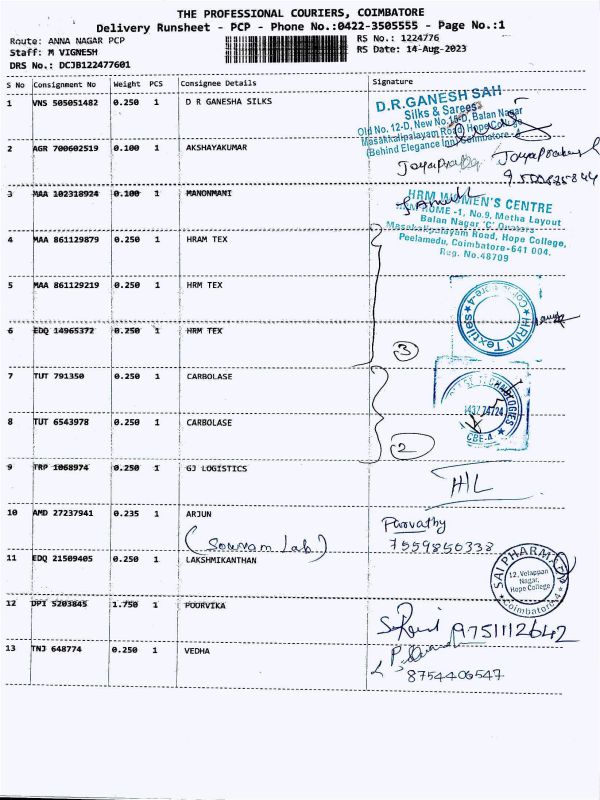 THE PROFESSIONAL COURIERS, COIMBATORE
Delivery Runsheet - PCP - Phone No.:0422-3505555 - Page No.:1
Route: ANNA NAGAR PCP
Staff: M VIGNESH
DRS No.: DCJB122477601
RS No.: 1224776
RS Date: 14-Aug-2023
S No Consignment No Weight PCS Consignee Details Signature
1 VNS 505051482 0.250 1 D R GANESHA SILKS
D.R.GANESH SAH
Silks & Sarees
Old No. 12-D, New No. 16-D, Balan Nagar
Masakkalipalayam Road, Hope College
(Behind Elegance Inn) Coimbatore-4
2 AGR 700602519 0.100 1 AKSHAYAKUMAR
3 MAA 102318924 0.100 1 MANONMANI
HRM WOMEN'S CENTRE
HRM HOME -1, No.9, Metha Layout
Balan Nagar 'C'
Masakalipalayam Road, Hope College,
Peelamedu, Coimbatore-641 004.
Reg. No.48709
4 MAA 861129879 0.250 1 HRAM TEX
5 MAA 861129219 0.250 1 HRM TEX
HRM Textiles
6 EDQ 14965372 0.250 1 HRM TEX
3
7 TUT 791350 0.250 1 CARBOLASE
TECHNOLOGIES
CBE-4
8 TUT 6543978 0.250 1 CARBOLASE
2
9 TRP 1068974 0.250 1 GJ LOGISTICS
10 AMD 27237941 0.235 1 ARJUN
Parvathy
7559850338
11 EDQ 21509405 0.250 1 LAKSHMIKANTHAN
SAI PHARMA
12, Velappan
Nagar,
Hope College
Coimbatore-4
12 DPI 5203845 1.750 1 POORVIKA
9751112642
13 TNJ 648774 0.250 1 VEDHA
8754406547